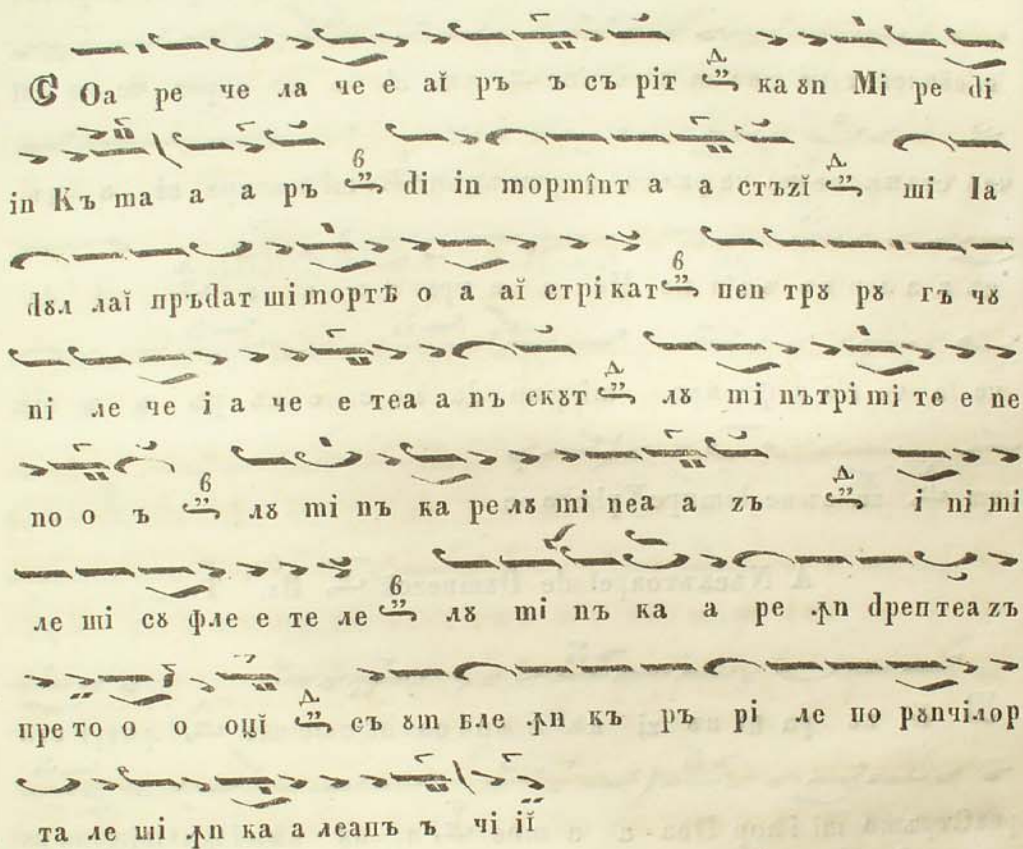 Ꞓ Оа ре че ла че е аĭ ръ ъ съ ріт Д ка ꙋn Mi ре di
in Къ ma а а ръ в di in mopmînt а а стъzĭ Д ші Іа
dꙋл лаĭ пръdат ші mopтѣ о а аĭ стрі кат в пеn трꙋ рꙋ гъ чꙋ
ni ле че і а че е теа а nъ скꙋт Д лꙋ mi nътрі mi те е пе
no о ъ в лꙋ mi nъ ка ре лꙋ mi nea а zъ Д і ni mi
ле ші сꙋ фле е те ле в лꙋ mi nъ ка а ре ꙟn dрептеа zъ
пре то о о оцĭ Д съ ꙋm бле ꙟn къ ръ рі ле по рꙋnчілор
та ле ші ꙟn ка а леаnъ ъ чі іĭ